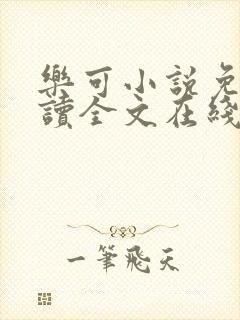 樂可小說免
讀全文在綫
一筆飛天